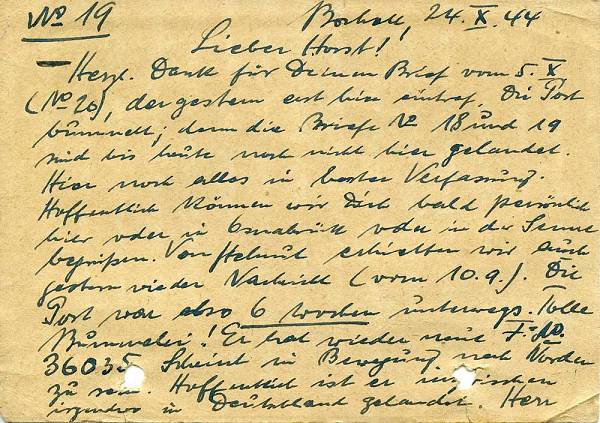 No 19
Bocholt, 24. X. 44
Lieber Horst!
Herzl. Dank für Deinen Brief vom 5. X
(No 20), der gestern erst hier eintraf. Die Post
bummelt; denn die Briefe No 18 und 19
sind bis heute noch nicht hier gelandet.
Hier noch alles in bester Verfassung.
Hoffentlich können wir Dich bald persönlich
hier oder in Osnabrück oder in der Senne
begrüßen. Von Helmut erhielten wir auch
gestern wieder Nachricht (vom 10.9.). Die
Post war also 6 Wochen unterwegs. Tolle
Bummelei! Er hat wieder neue F. No.
36035. Scheint in Bewegung nach Norden
zu sein. Hoffentlich ist er inzwischen
irgendwo in Deutschland gelandet. Herr